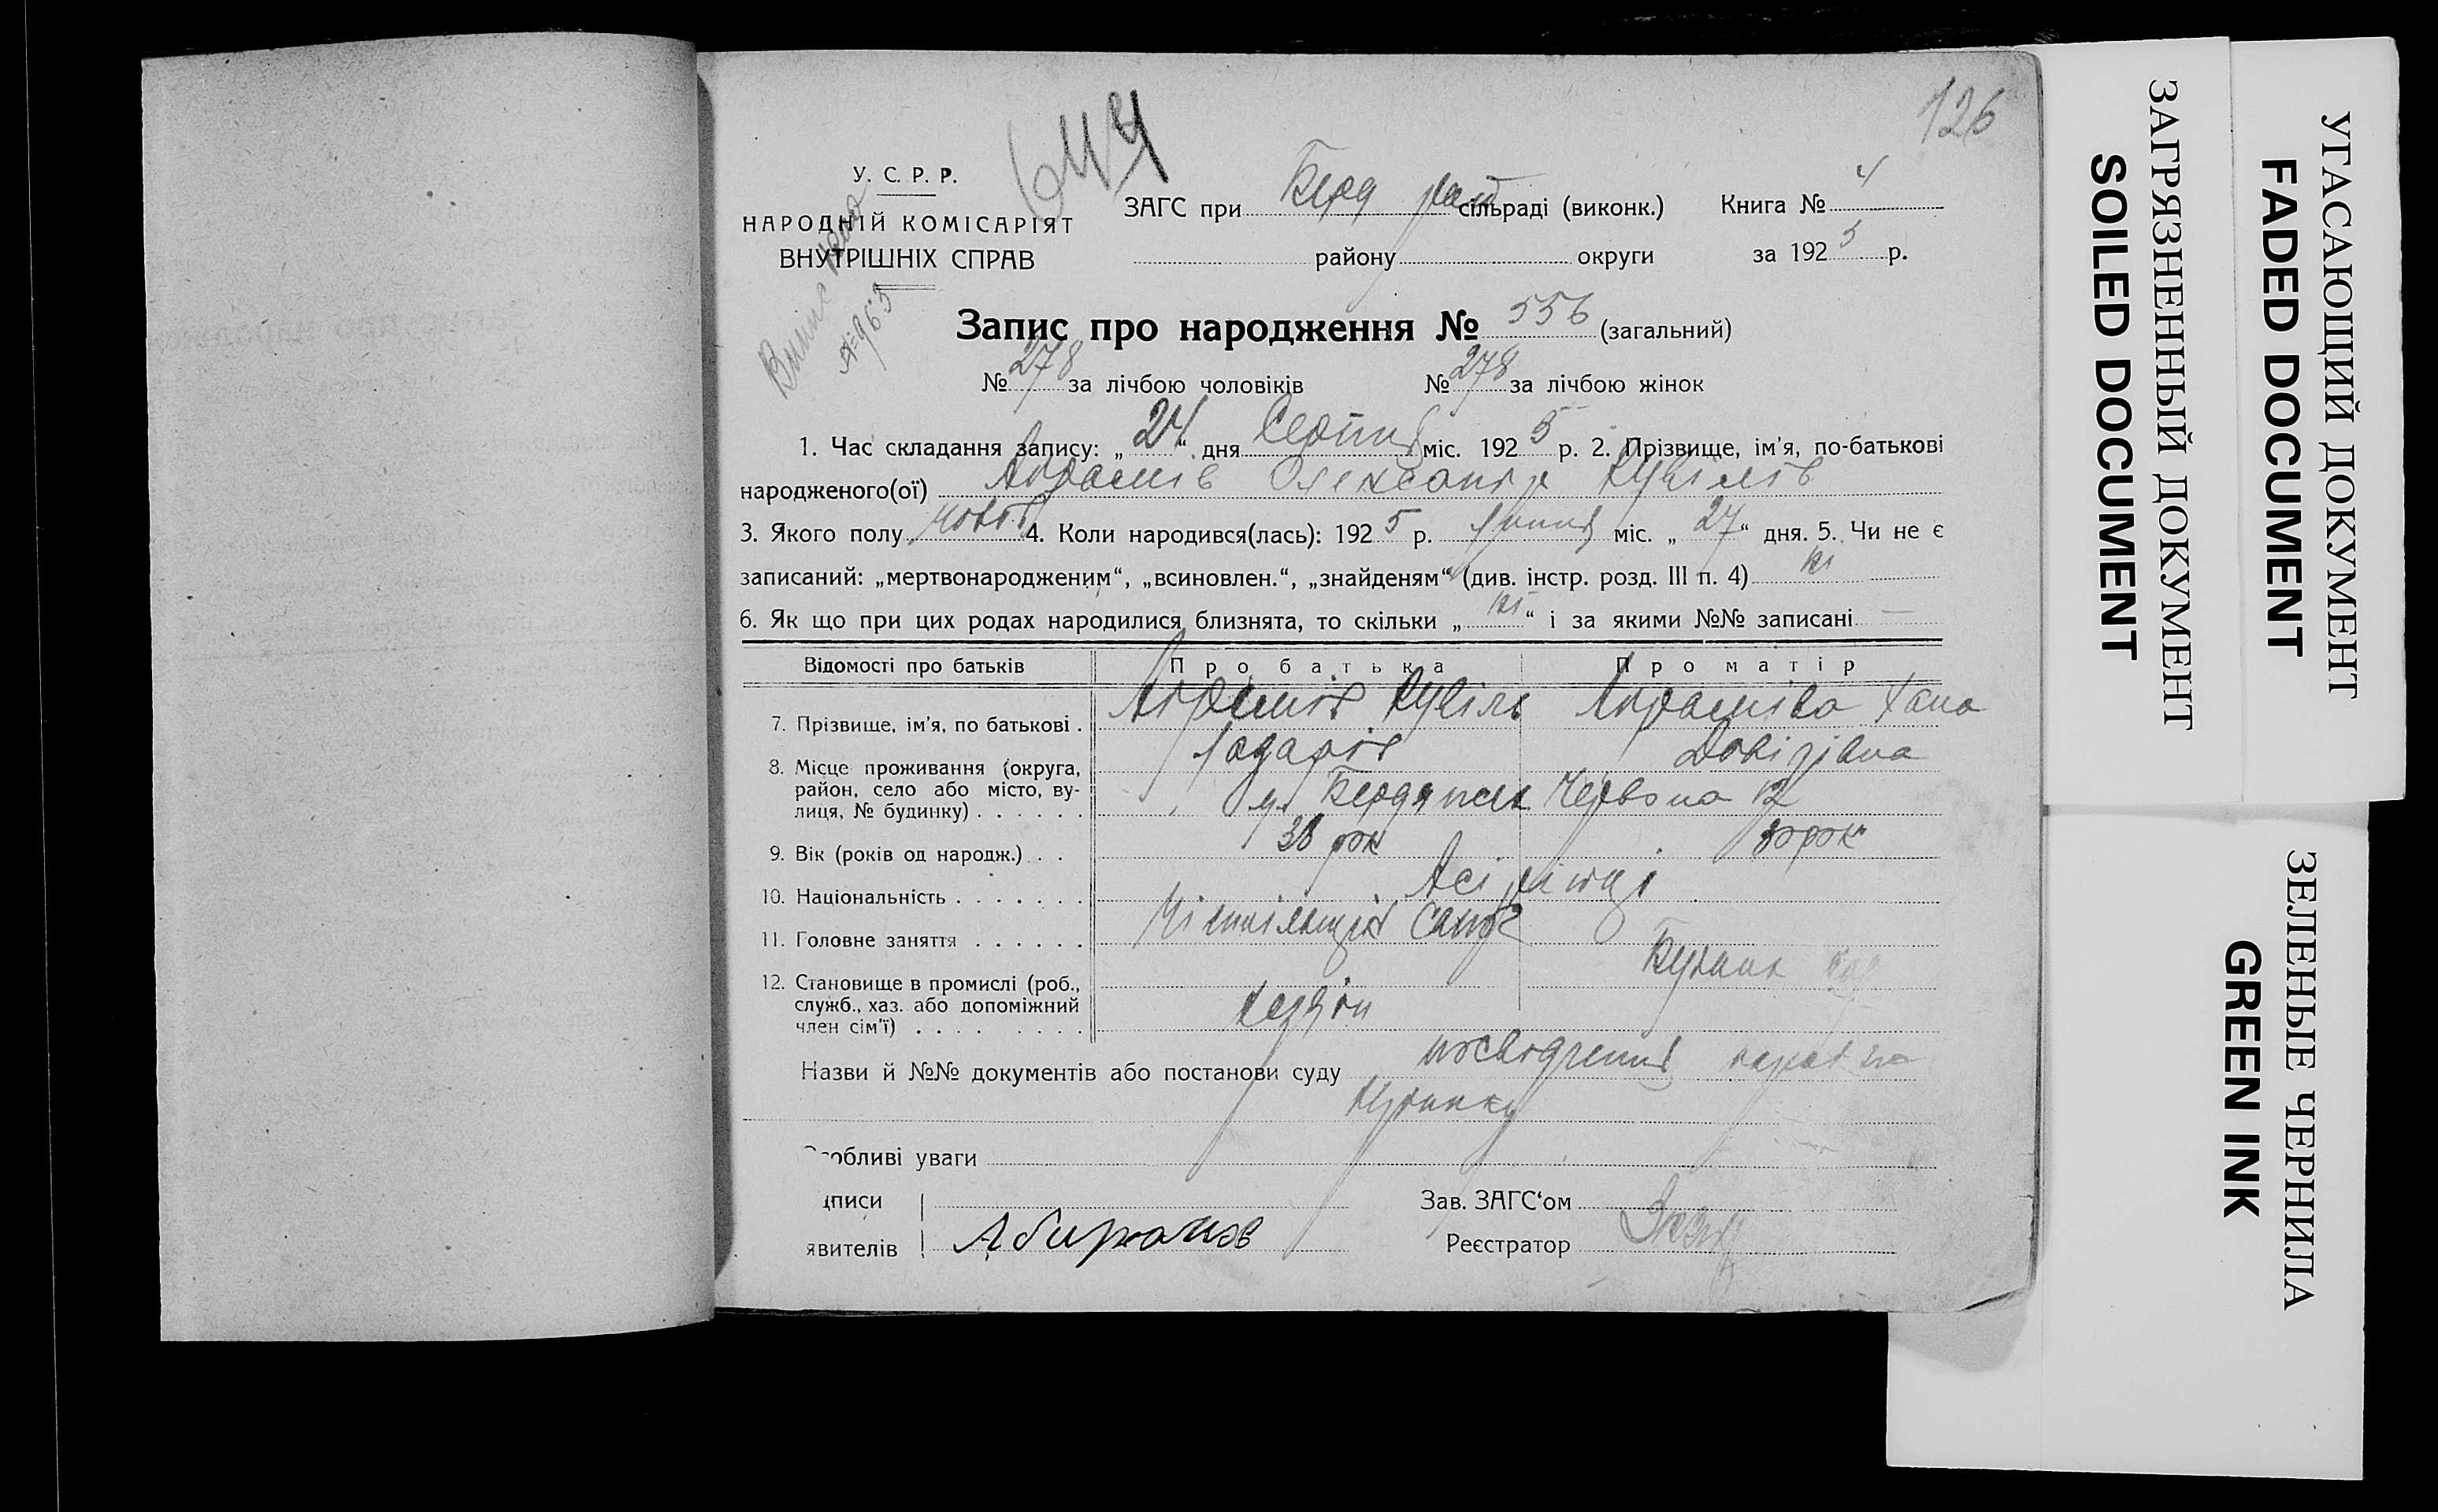 126
644
У. С. Р. Р.
НАРОДНІЙ КОМІСАРІЯТ
ВНУТРІШНІХ СПРАВ
ЗАГС при Берд рай сільраді (виконк.) Книга № 4
району округи за 1925 р.
Запис про народження № 556 (загальний)
№ 278 за лічбою чоловіків № 278 за лічбою жінок
1. Час складання запису: „24“ дня Серпня міс. 1925 р. 2. Прізвище, ім'я, по-батькові
народженого(ої) Авраамів Олександр
3. Якого полу чолов. 4. Коли народився(лась): 1925 р. липня міс. „27“ дня. 5. Чи не є
записаний: „мертвонародженим“, „всиновлен.“, „знайденям“ (див. інстр. розд. III п. 4) ні
6. Як що при цих родах народилися близнята, то скільки „ні“ і за якими №№ записані —
Відомості про батьків Про батька Про матір
7. Прізвище, ім'я, по батькові . Хана
Довідівна
8. Місце проживання (округа,
район, село або місто, ву-
лиця, № будинку) . . . . . . м. Бердянськ Червона 12
9. Вік (років од народж.) . . 38 рок 30 рок
10. Національність . . . . . . . Асірійці
11. Головне заняття . . . . . .
12. Становище в промислі (роб.,
служб., хаз. або допоміжний
член сім'ї) . . . . . . . . . хазяін
Назви й №№ документів або постанови суду посвідчення
будинку
Особливі уваги
дписи Зав. ЗАГС'ом
явителів Реєстратор
ЗАГРЯЗНЕННЫЙ ДОКУМЕНТ
SOILED DOCUMENT
УГАСАЮЩИЙ ДОКУМЕНТ
FADED DOCUMENT
ЗЕЛЕНЫЕ ЧЕРНИЛА
GREEN INK